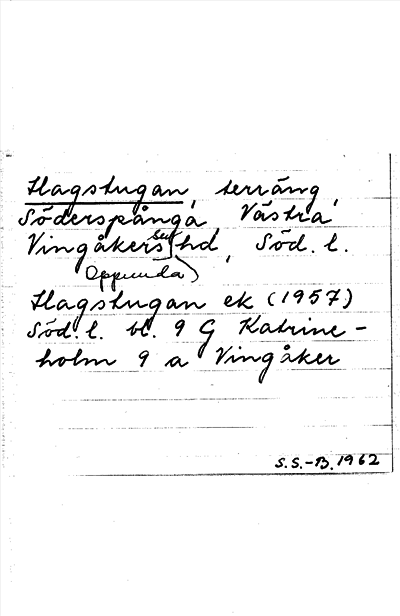 Hagstugan, terräng,
Söderspånga Västra
Vingåkers sn, hd, Söd. l.
Oppunda
Hagstugan ek (1957)
Söd. l. bl. 9 G Katrine-
holm 9 a Vingåker
S.S.-B. 1962